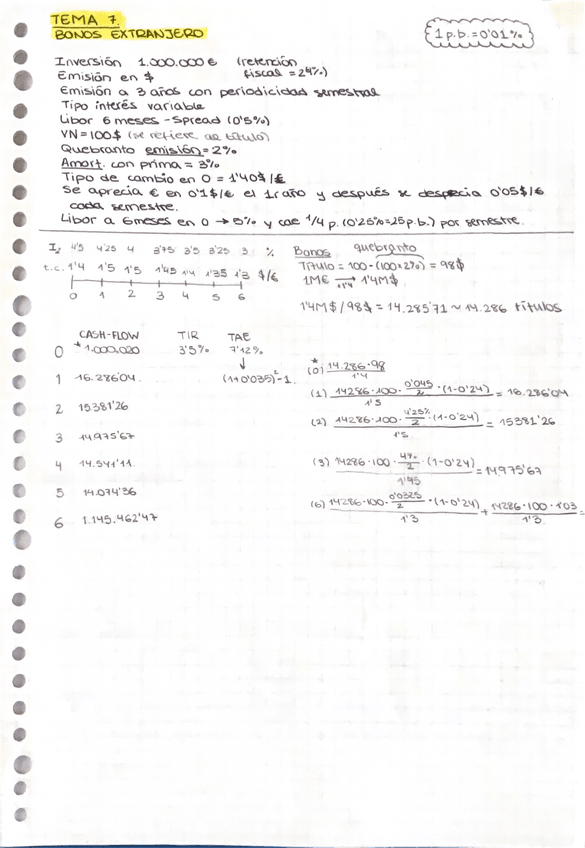 TEMA 7.
BONOS EXTRANJERO
1 p.b. = 0'01%
Inversión 1.000.000 € (retención fiscal = 24%)
Emisión en $
Emisión a 3 años con periodicidad semestral
Tipo interés variable
Libor 6 meses - Spread (0'5%)
VN = 100$ (se refiere al título)
Quebranto emisión = 2%
Amort. con prima = 3%
Tipo de cambio en 0 = 1'40 $/€
Se aprecia € en 0'1$/€ el 1r año y después se desprecia 0'05$/€
cada semestre.
Libor a 6 meses en 0 → 5% y cae 1/4 p. (0'25% = 25 p.b.) por semestre.
I2 4'5 4'25 4 3'75 3'5 3'25 3 %
t.c. 1'4 1'5 1'5 1'45 1'4 1'35 1'3 $/€
0 1 2 3 4 5 6
Bonos quebranto
Título = 100 - (100 x 2%) = 98$
1M€ → 1'4M$
x1'4
1'4M$/98$ = 14.285'71 ~ 14.286 títulos
CASH-FLOW TIR TAE
0 * 1.000.020 3'5% 7'12%
↓
(1+0'035)²-1
1 16.286'04
2 15381'26
3 14.975'67
4 14.541'11
5 14.074'36
6 1.145.462'47
* (0) 14.286·98 / 1'4
(1) 14286·100· 0'045/2 ·(1-0'24) / 1'5 = 16.286'04
(2) 14286·100· 4'25%/2 ·(1-0'24) / 1'5 = 15381'26
(3) 14286·100· 4%/2 ·(1-0'24) / 1'45 = 14975'67
(6) 14286·100· 0'0325/2 ·(1-0'24) / 1'3 + 14286·100·1'03 / 1'3 =